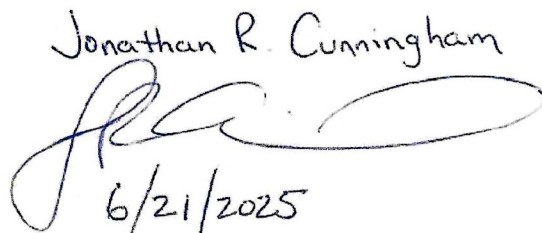 Jonathan R. Cunningham
6/21/2025